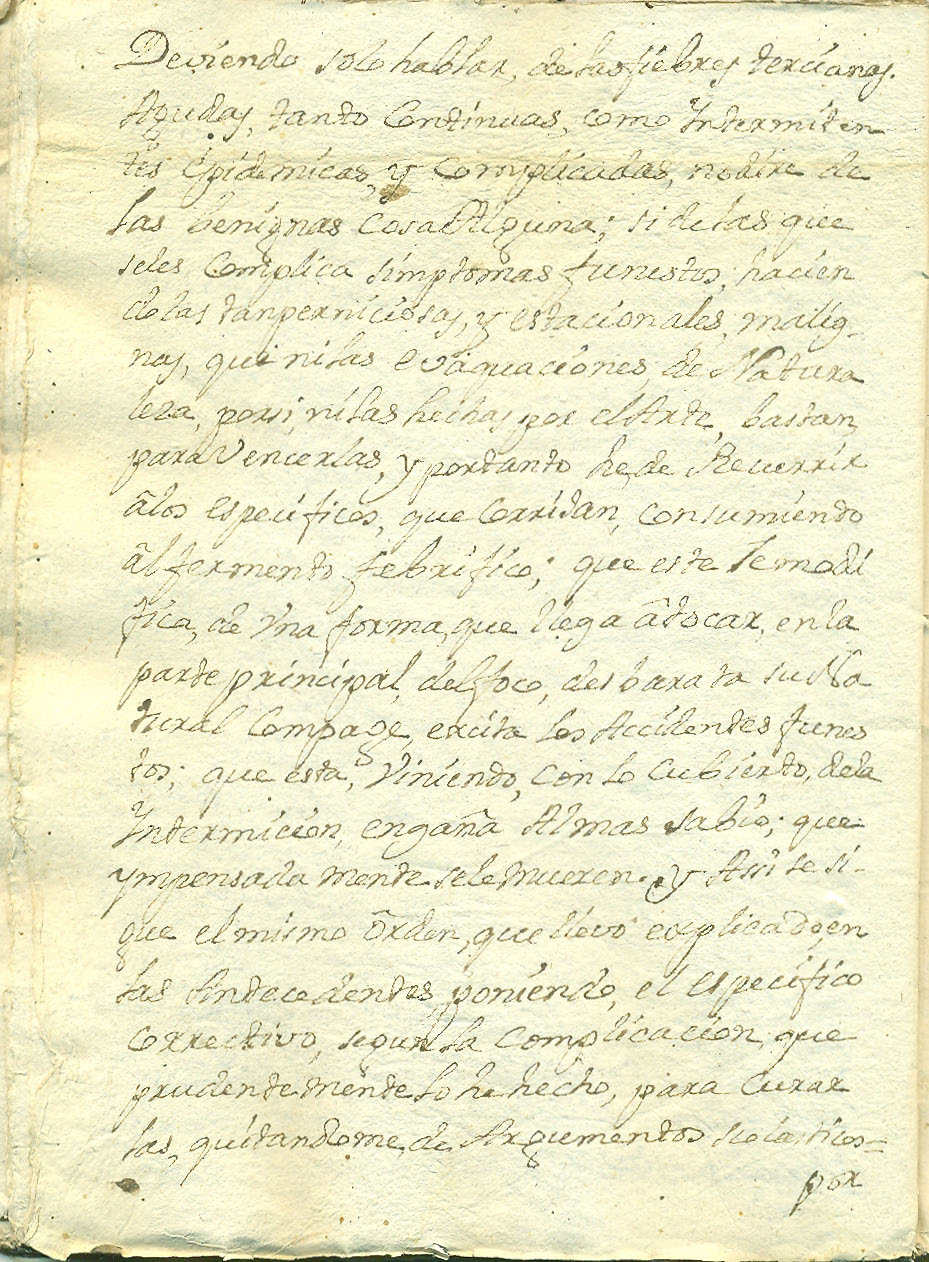 Deviendo solo hablar, de las fiebres tercianas.
Agudas, tanto Continuas, como Intermiten
tes Epidemicas, y Complicadas, nodire de
las benignas cosa Alguna; si delas que
seles Complica simptomas funestos; hacien
dolas tanperniciosas, y estacionales, malig-
nas, que nilas evaquaciones, de Natura
leza, porsi, nilas hechas por elArte, bastan,
para Vencerlas, y portanto hede Recurrir
âlos especificos, que Corrijan, consumiendo
âl fermento febrifico; que este se modi
fica, de Vna forma, que llega âtocar, en la
parte principal, del foco, desbarata su Na
tural Compage, excita los Accidentes funes
tos; que esta, Viniendo, con lo cubierto, dela
Intermicion, engaña Almas sabio; que
ympensada mente sele mueren. y Assi se si-
gue el mismo ôrden, que llevo explicado, en
las Antecedentes, poniendo, el especifico
correctivo, segun la complicacion, que
prudente mente lo he hecho, para Curar
las, quitandome, de Argumentos scolasticos=
por